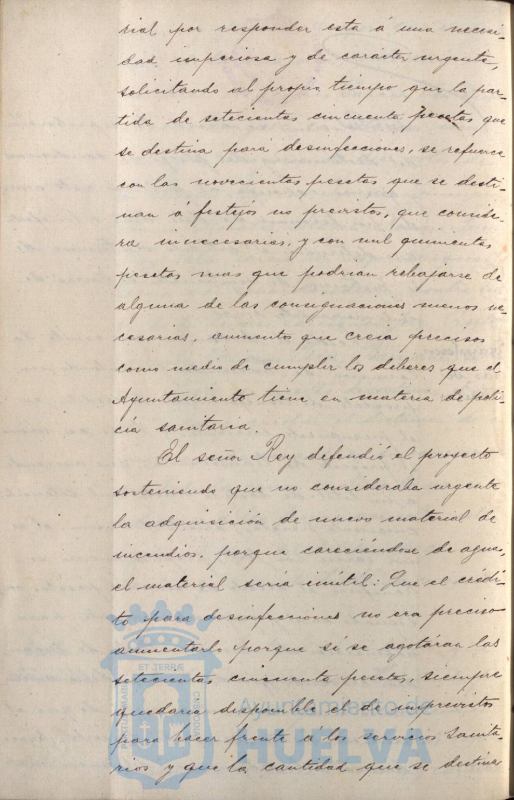 rial por responder esta á una necesi-
dad imperiosa y de carácter urgente,
solicitando al propio tiempo que la par-
tida de setecientas cincuenta pesetas que
se destina para desinfecciones, se refunda
con las novecientas pesetas que se desti-
nan á festejos no previstos, que conside-
ra innecesarias, y con mil quinientas
pesetas mas que podrian rebajarse de
alguna de las consignaciones menos ne-
cesarias, aumentos que creia precisos
como medio de cumplir los deberes que el
Ayuntamiento tiene en materia de poli-
cía sanitaria.
El señor Rey defendió el proyecto
sosteniendo que no consideraba urgente
la adquisición de nuevo material de
incendios, porque careciéndose de agua,
el material sería inútil: Que el crédi-
to para desinfecciones no era preciso
aumentarlo porque si se agotáran las
setecientas cincuenta pesetas, siempre
quedaria disponible el de imprevistos
para hacer frente á los servicios sanita-
rios y que la cantidad que se destina
ET TERRÆ
Ayuntamiento de
HUELVA